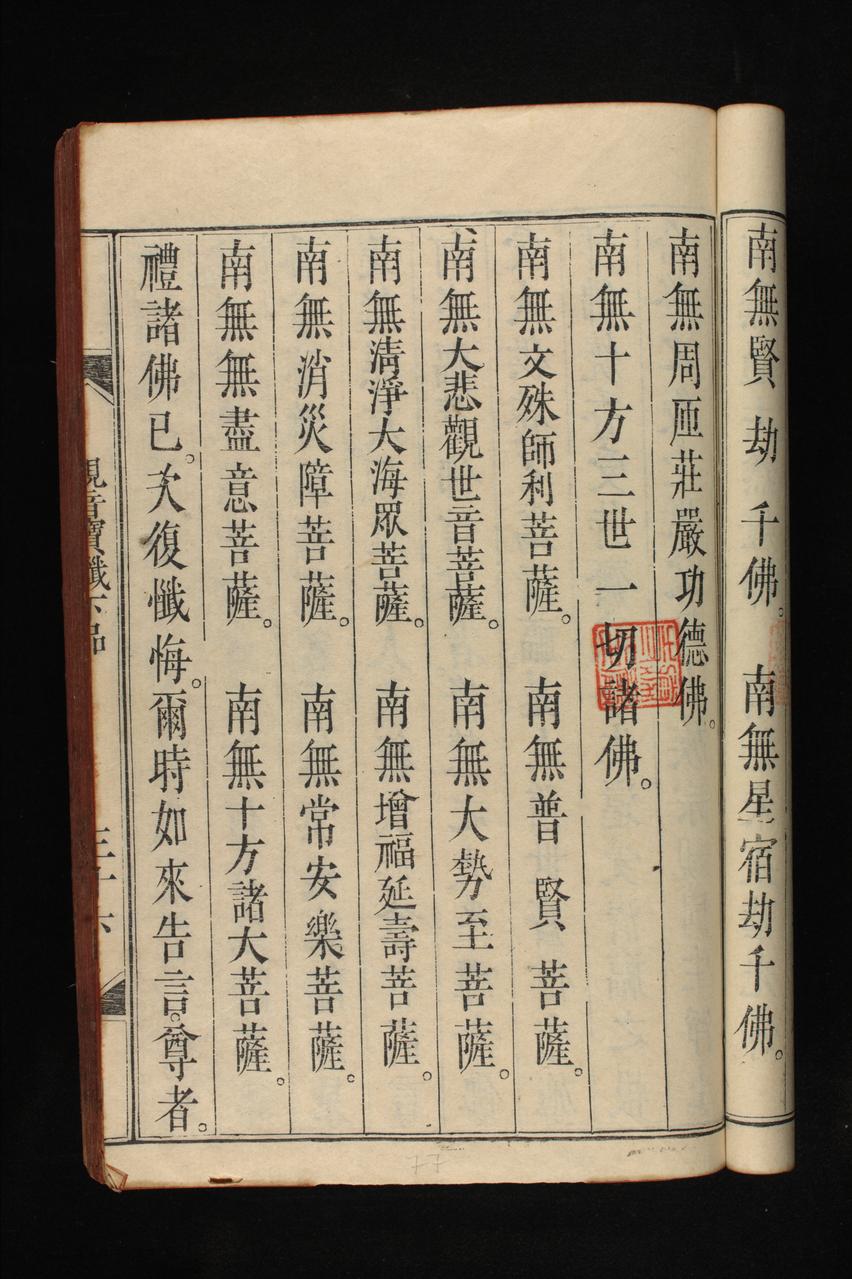 南無賢劫千佛。南無星宿劫千佛。
南無周匝莊嚴功德佛。
南無十方三世一切諸佛。
南無文殊師利菩薩。南無普賢菩薩。
南無大悲觀世音菩薩。南無大勢至菩薩。
南無清淨大海眾菩薩。南無增福延壽菩薩。
南無消災障菩薩。南無常安樂菩薩。
南無無盡意菩薩。南無十方諸大菩薩。
禮諸佛已。次復懺悔。爾時如來告言。尊者。
觀音寶懺下品 三十六